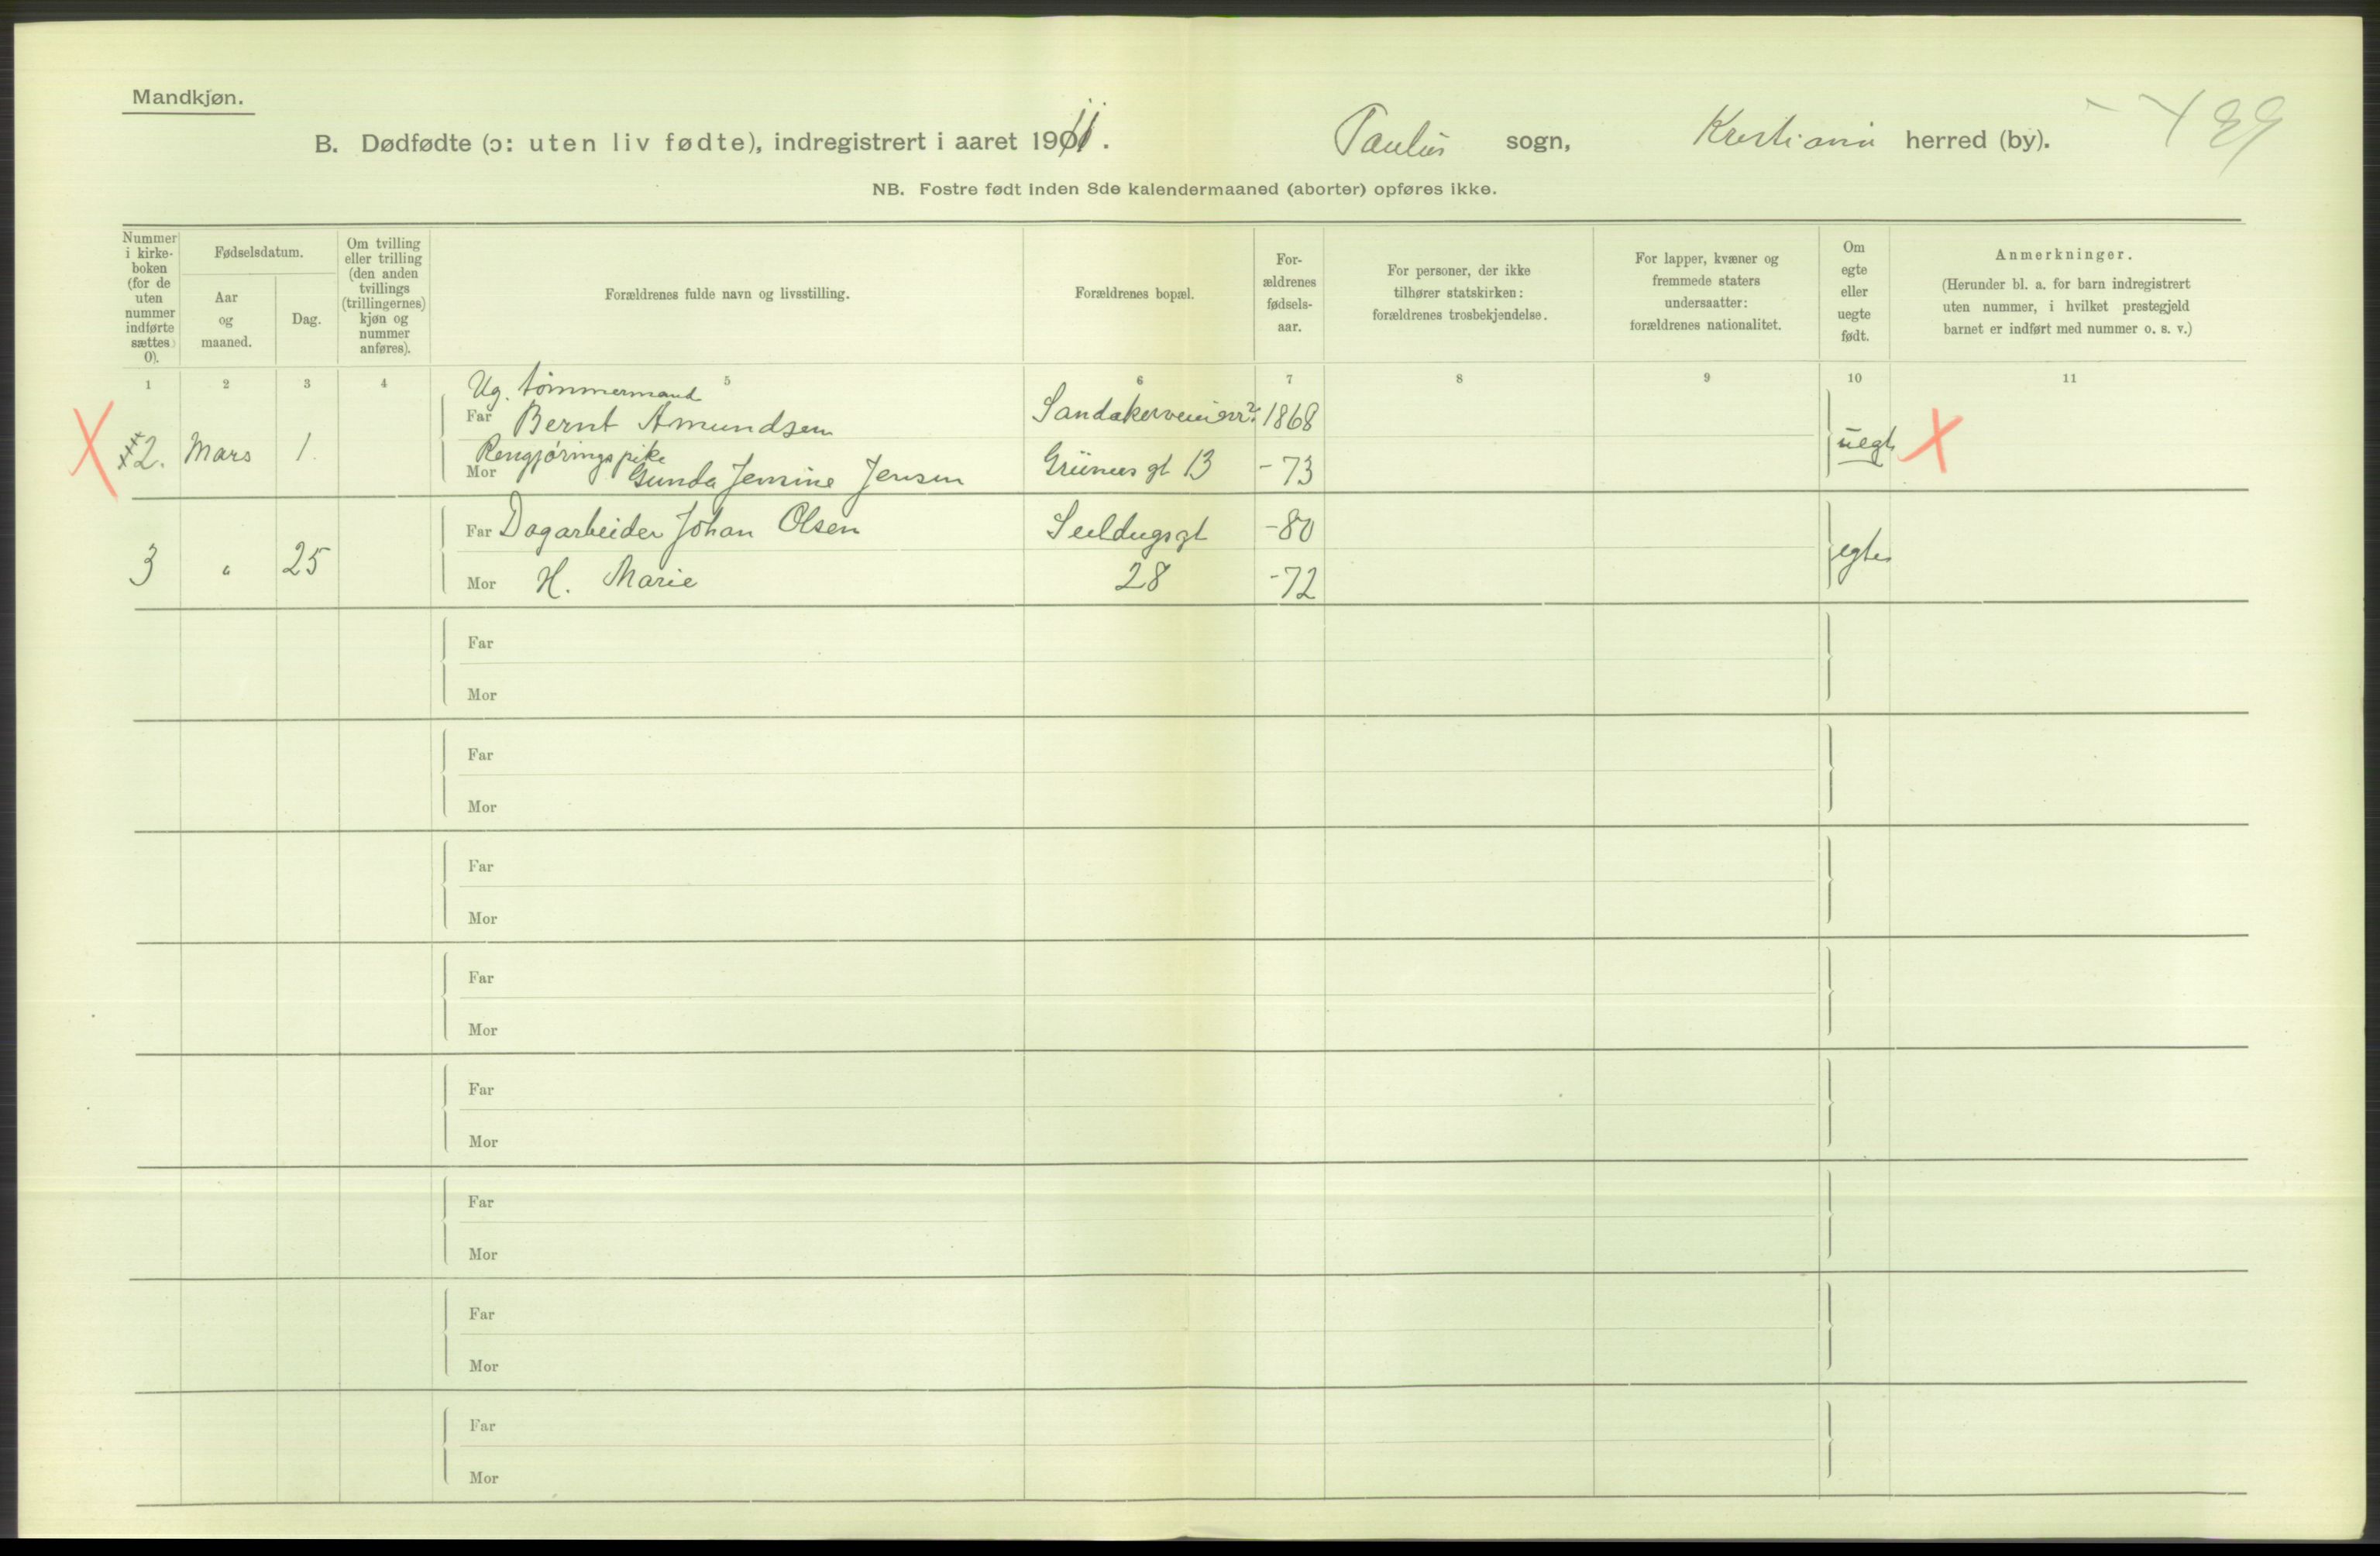 Mandkjøn.
B. Dødfødte (ɔ: uten liv fødte), indregistrert i aaret 1911. Paulus sogn, Kristiania herred (by). 489
NB. Fostre født inden 8de kalendermaaned (aborter) opføres ikke.
Nummer i kirke-boken (for de uten nummer indførte sættes 0).
Fødselsdatum.
Aar og maaned.
Dag.
Om tvilling eller trilling (den anden tvillings (trillingernes) kjøn og nummer anføres).
Forældrenes fulde navn og livsstilling.
Forældrenes bopæl.
For-ældrenes fødsels-aar.
For personer, der ikke tilhører statskirken: forældrenes trosbekjendelse.
For lapper, kvæner og fremmede staters undersaatter: forældrenes nationalitet.
Om egte eller uegte født.
Anmerkninger.
(Herunder bl. a. for barn indregistrert uten nummer, i hvilket prestegjeld barnet er indført med nummer o. s. v.)
1 2 3 4 5 6 7 8 9 10 11
Ug. tømmermand
Far Bernt Amundsen Sandakerveien 1868
2. Mars 1. uegte
Rengjøringspike
Mor Gunda Jensine Jensen Grüners gt 13 -73
Far Dagarbeider Johan Olsen Seildugsgt -80
3 " 25 egte
Mor H. Marie 28 -72
Far
Mor
Far
Mor
Far
Mor
Far
Mor
Far
Mor
Far
Mor
Far
Mor
Far
Mor